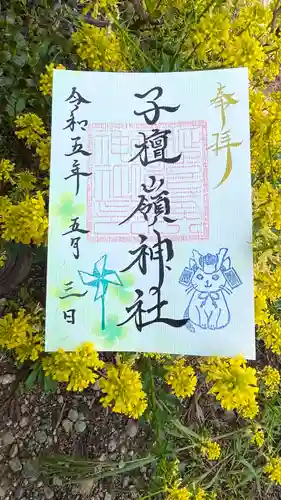 奉拝
子檀嶺神社
令和五年
五月三日